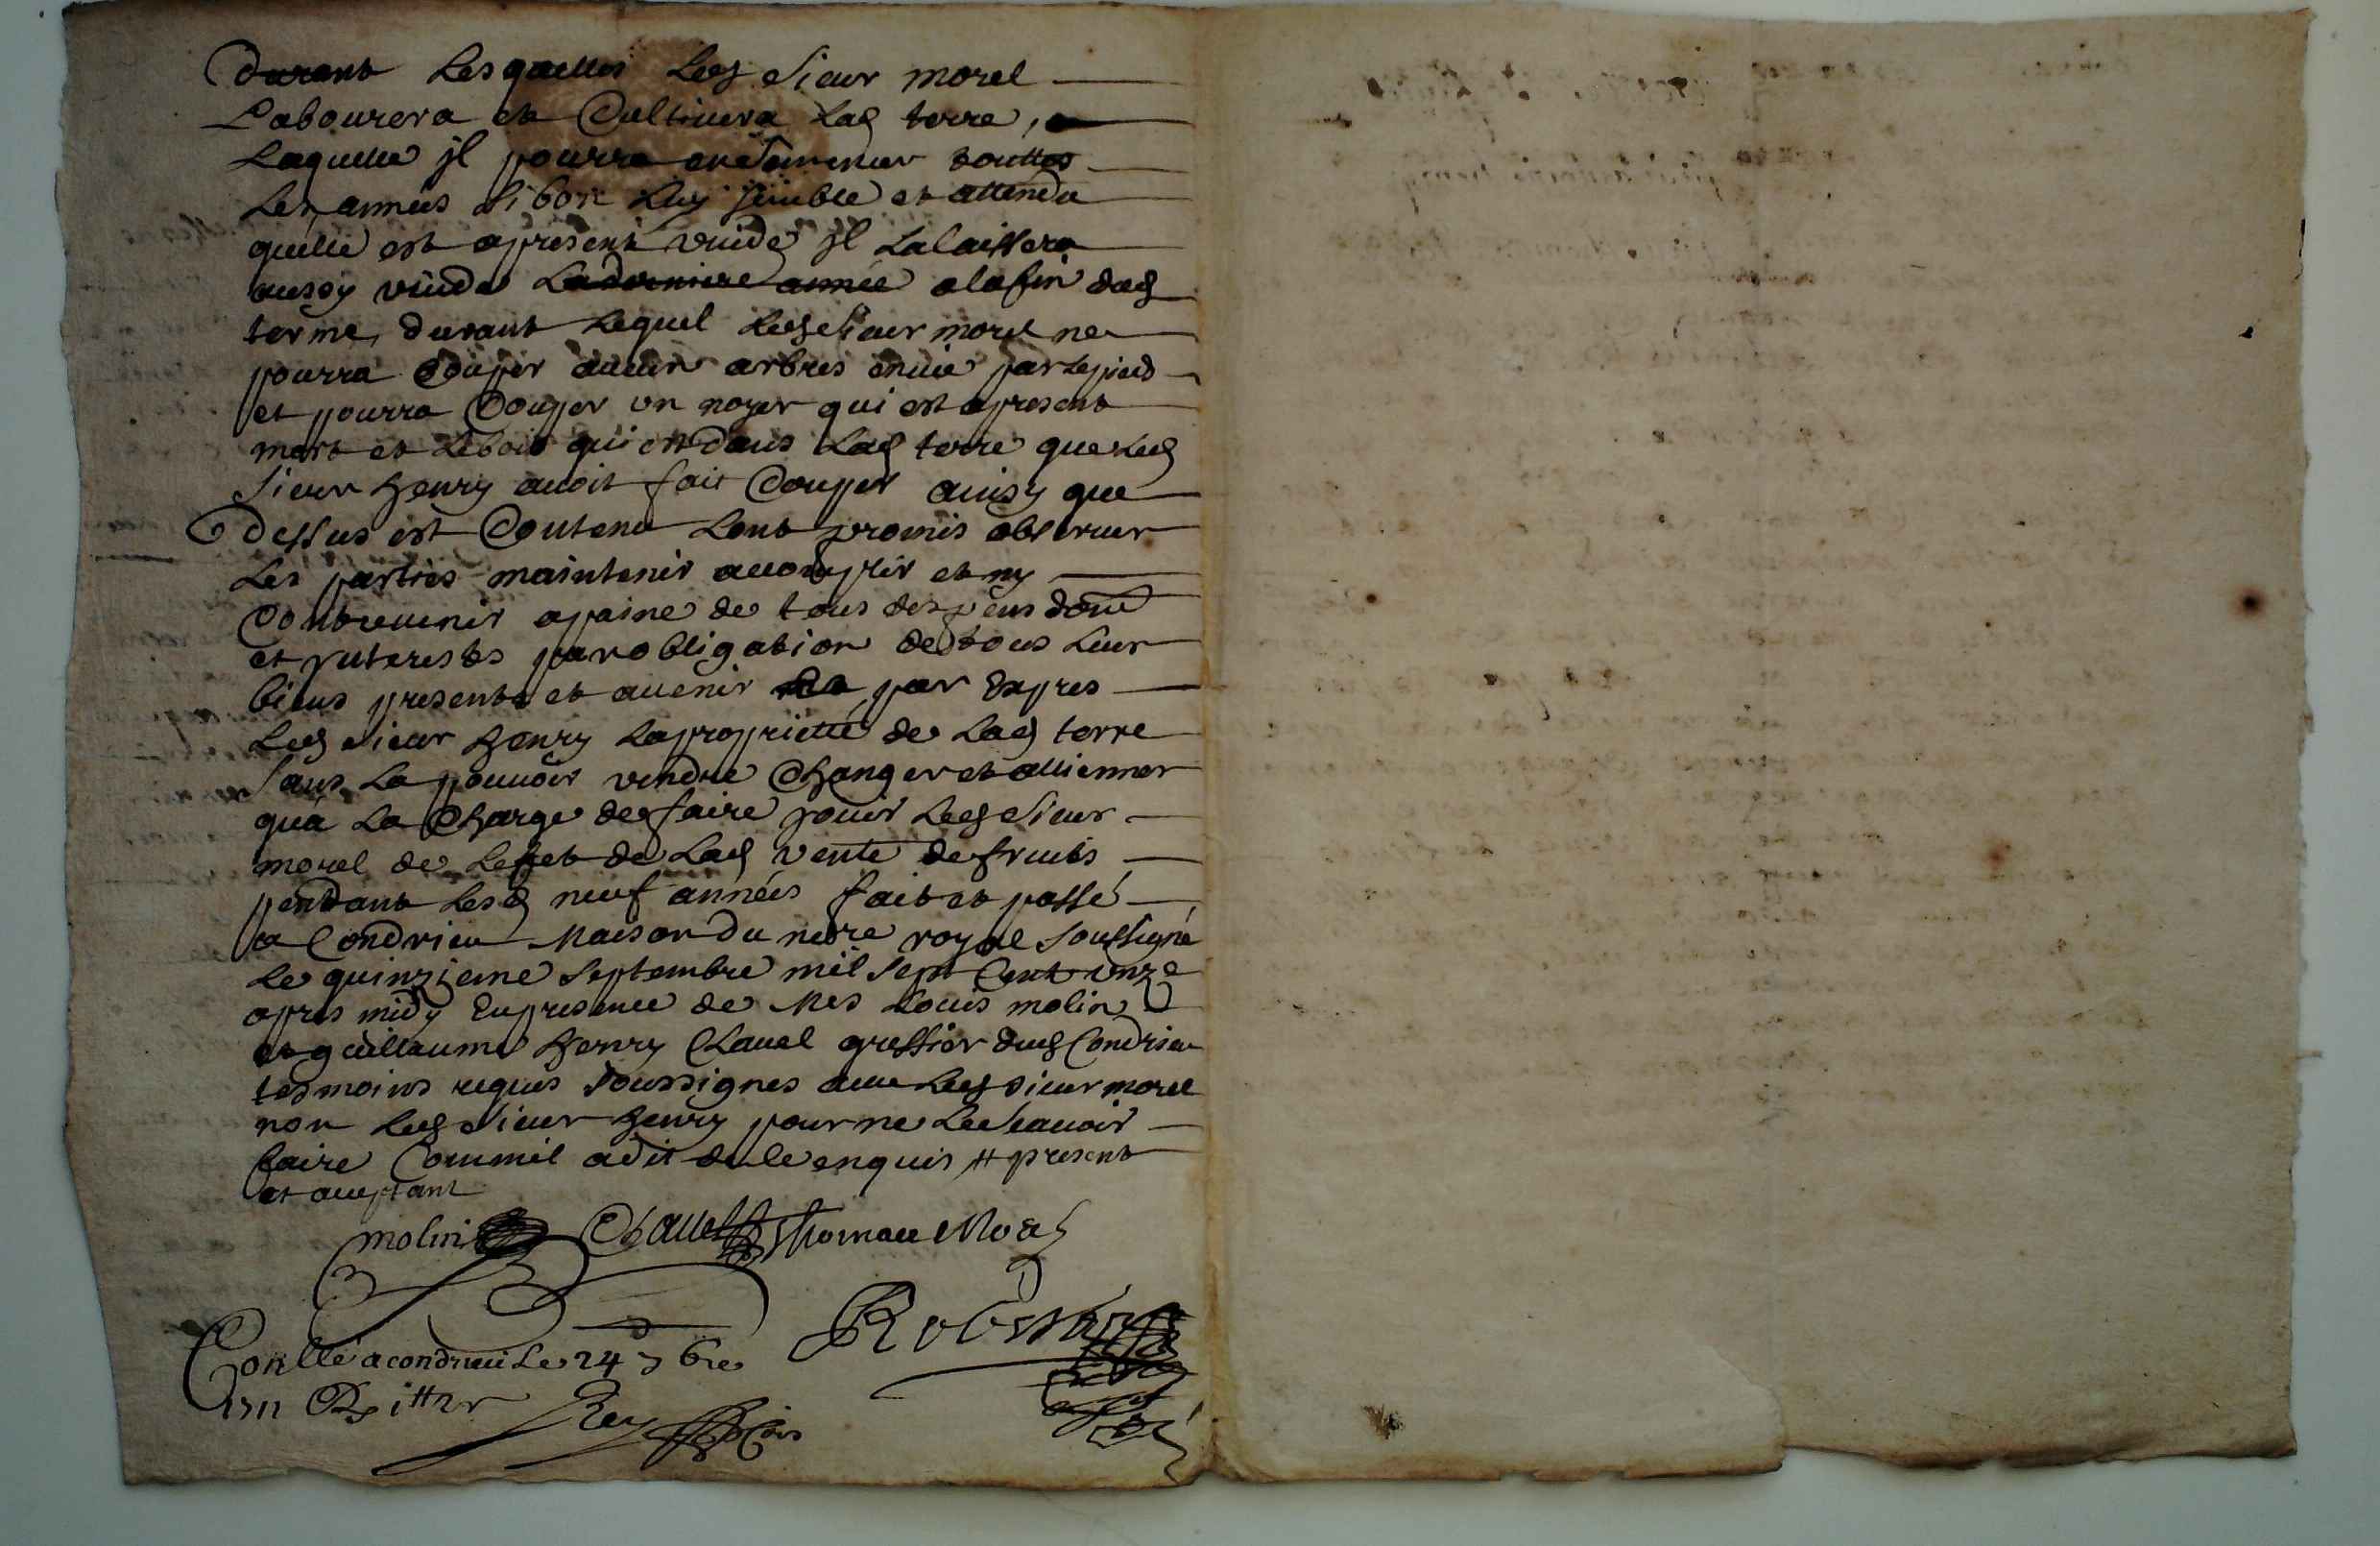 durant Lesquelles Led Sieur morel
Labourera et Cultivera Lad terre,
Laquelle jl pourra ensemencer touttes
Les années si bon Luy semble et attendu
quelle est apresent vuide jl La laissera
aussy vuide La derniere année a la fin dud
terme, durant Lequel Led sieur morel ne
pourra Couper aucun arbres en vie par Le pied
et pourra Couper un noyer qui est apresent
mort et Le bois qui est dans Lad terre que Led
Sieur henry avoit fait Couper ainsy que
dessus est Contenu Lont promis observer
Les parties maintenir accomplir et ny
Contrevenir a paine de tous despens dom
et jnterests par obligation de tous Leur
biens presents et avenir par Expres
Led sieur henry La proprietté de Lad terre
Sans La pouvoir vendre Changer et allienner
qua La Charge de faire jouir Led Sieur
morel de Leffet de Lad vente de fruits
pendant Lesd neuf années fait et passé
a Condrieu Maison du nore royal soussigné
Le quinzieme Septembre mil Sept Cent unze
apres midy En presence de Mes Louis molin
et guillaume henry Chavel greffier dud Condrieu
tesmoins requis soussignes avec Led sieur morel
non Led sieur henry pour ne Le scavoir
faire Comme il a dit de ce enquis # present
et aceptant
molin Chavel Thomas Morel
Robert
Conllé a condrieu Le 24 7bre
1711
Rey